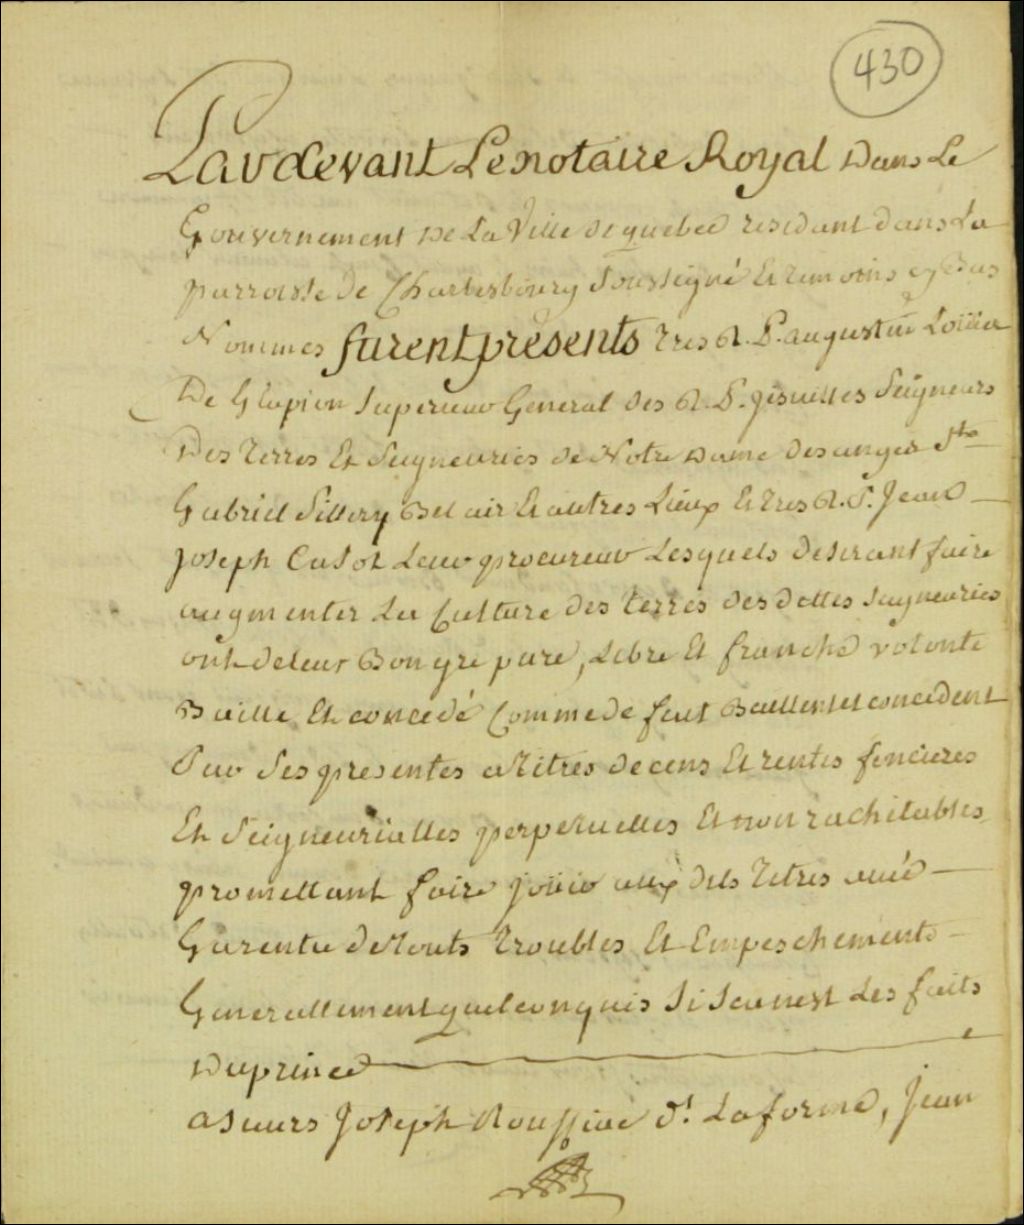 430
Pardevant Le notaire Royal Dans Le
Gouvernement De La Ville de quebec residant dans La
parroisse de Charlesbourg Soussigné Et temoins cy bas
Nommés furent présents tres R. P. augustin Loüis
De Glapion Superieur General des R. P. Jesuittes Seigneurs
Des terres Et Seigneuries de Notre Dame des anges St
Gabriel Sillery Bel air Et autres Lieux Et tres R. P. Jean
Joseph Casot Leur procureur Lesquels desirant faire
augmenter La Culture des terres des dittes seigneuries
ont de leur Bon gre pure, Libre Et franche volonte
Baille Et concedé Comme de fait Baillent et concedent
Par Ses presentes a titres de cens Et rentes foncieres
Et Seigneurialles perpetuelles Et non rachitables
promettant faire joüir aux dits titres avec
Garentie de touts troubles Et Empeschements
Generallement quelconques Si Se n'est Les faits
Du prince
a Sieurs Joseph Roussin dt. Laforme, Jean